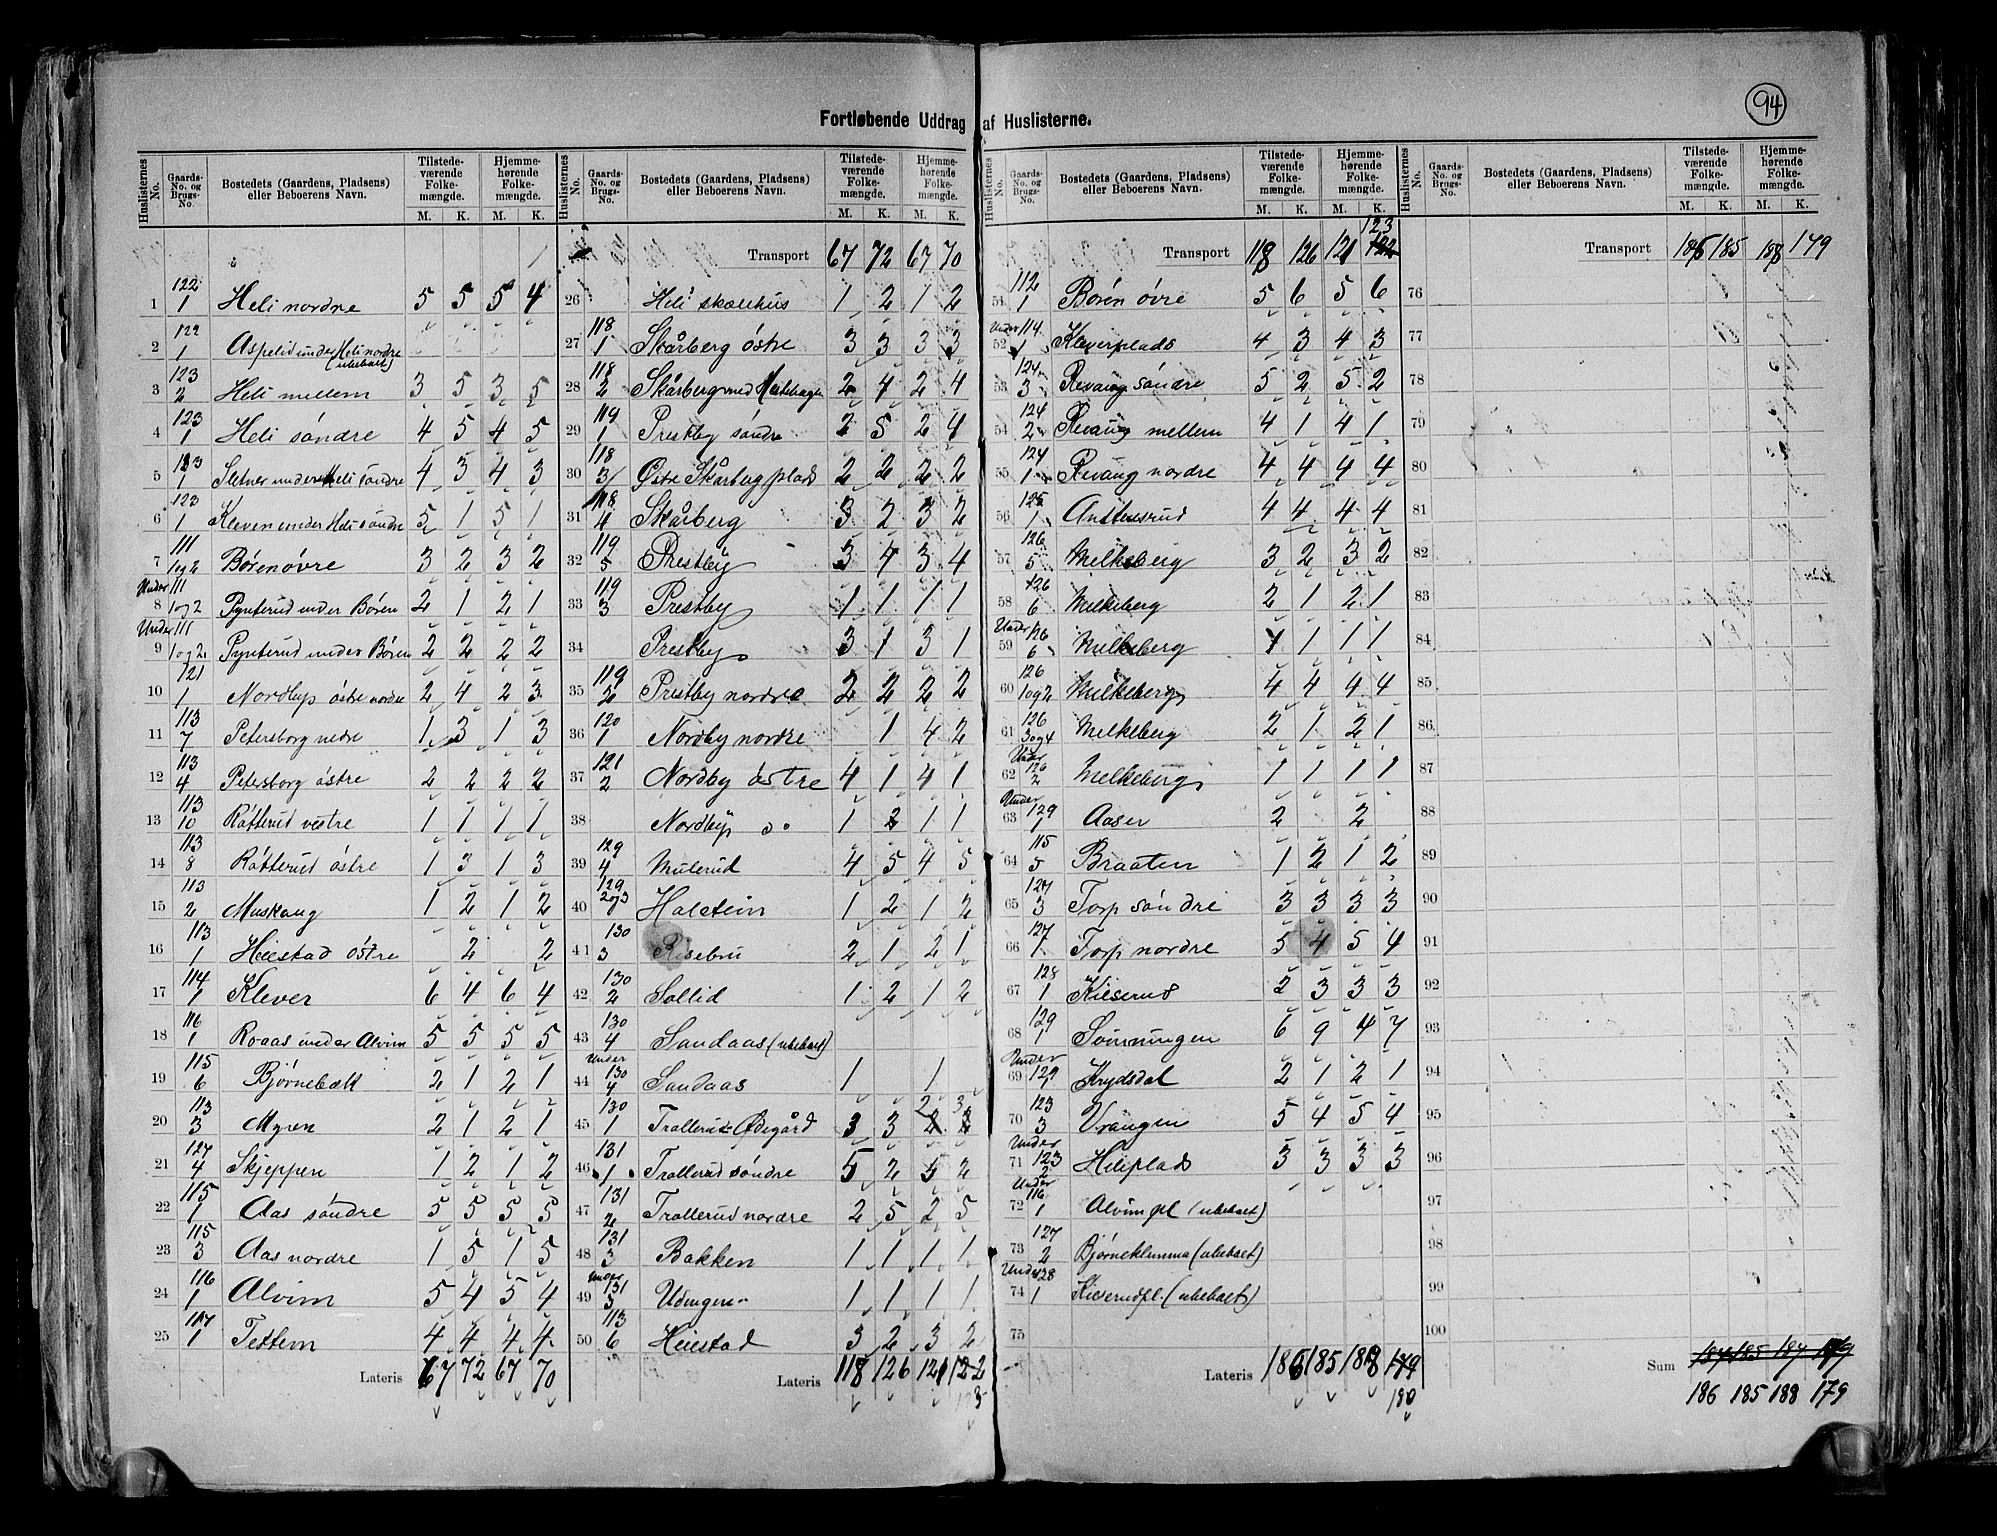 94
Fortløbende Uddrag af Huslisterne.
Huslisternes No. Gaards-No. og Brugs-No. Bostedets (Gaardens, Pladsens) eller Beboerens Navn. Tilstedeværende Folkemængde. M. K. Hjemmehørende Folkemængde. M. K.
1 122/1 Heli nordre 5 5 5 4
2 122/1 Aspelid under Heli nordre (ubeboet)
3 123/2 Heli mellem 3 5 3 5
4 123/1 Heli söndre 4 5 4 5
5 123/1 Sletner under Heli söndre 4 3 4 3
6 123/1 Kleven under Heli söndre 5 1 5 1
7 111/1og2 Bören övre 3 2 3 2
8 Under 111/1og2 Pynterud under Bören 2 1 2 1
9 Under 111/1og2 Pynterud under Bören 2 2 2 2
10 121/1 Nordby östre nordre 2 4 2 3
11 113/7 Petersborg nedre 1 3 1 3
12 113/4 Petersborg östre 2 2 2 2
13 113/10 Råtterud vestre 1 1 1 1
14 113/8 Råtterud östre 1 3 1 3
15 113/2 Muskaug 1 2 1 2
16 113/1 Heiestad östre 2 2
17 114/1 Klever 6 4 6 4
18 116/1 Roaas under Alvim 5 5 5 5
19 115/6 Bjørnebæk 2 1 2 1
20 113/3 Myren 2 1 2 1
21 127/4 Skjeppen 1 2 1 2
22 115/1 Aas söndre 5 5 5 5
23 115/3 Aas nordre 1 5 1 5
24 116/1 Alvim 5 4 5 4
25 117/1 Tettem 4 4 4 4
Lateris 67 72 67 70
Huslisternes No. Gaards-No. og Brugs-No. Bostedets (Gaardens, Pladsens) eller Beboerens Navn. Tilstedeværende Folkemængde. M. K. Hjemmehørende Folkemængde. M. K.
Transport 67 72 67 70
26 Heli skolehus 1 2 1 2
27 118/1 Skårberg östre 3 3 3 3
28 118/2 Skårberg med 2 4 2 4
29 119/1 Prestby söndre 2 5 2 4
30 118/3 Östre Skårberg plads 2 2 2 2
31 118/4 Skårberg 3 2 3 2
32 119/5 Prestby 3 4 3 4
33 119/3 Prestby 1 1 1 1
34 Prestby 3 1 3 1
35 119/2 Prestby nordre 2 2 2 2
36 120/1 Nordby nordre 1 4 2
37 121/2 Nordby östre 4 1 4 1
38 Nordby 1 2 1 1
39 129/4 Mulerud 4 5 4 5
40 129/2og3 Holstein 1 2 1 2
41 130/3 Risebru 2 1 2 1
42 130/2 Sollid 1 2 1 2
43 130/4 Sandaas (ubeboet)
44 Under 130/4 Sandaas 1 1
45 130/1 Trollerud Ødegård 3 3 2 3
46 131/1 Trollerud söndre 5 2 5 2
47 131/2 Trollerud nordre 2 5 2 5
48 131/3 Bakken 1 1 1 1
49 Under 131/3 1 1 1 1
50 113/6 Heiestad 3 2 3 2
Lateris 118 126 121 122
123
Huslisternes No. Gaards-No. og Brugs-No. Bostedets (Gaardens, Pladsens) eller Beboerens Navn. Tilstedeværende Folkemængde. M. K. Hjemmehørende Folkemængde. M. K.
123
Transport 118 126 121 122
51 112/1 Börön övre 5 6 5 6
52 Under 114/1 Kleverplads 4 3 4 3
53 124/3 Revaug söndre 5 2 5 2
54 124/2 Revaug mellem 4 1 4 1
55 124/1 Revaug nordre 4 4 4 4
56 125/1 Anthusrud 4 4 4 4
57 126/5 Melkeberg 3 2 3 2
58 126/6 Melkeberg 2 1 2 1
59 Under 126/6 Melkeberg 1 1 1 1
60 126/1og2 Melkeberg 4 4 4 4
61 126/3og4 Melkeberg 2 1 2 1
62 Under 126/2 Melkeberg 1 1 1 1
63 Under 129/1 Aaser 2 2
64 115/5 Braaten 1 2 1 2
65 127/3 Torp söndre 3 3 3 3
66 127/1 Torp nordre 5 4 5 4
67 128/1 Kieserud 2 3 3 3
68 129/1 Sönningen 6 9 4 7
69 Under 129/1 Krydsdal 2 1 2 1
70 123/3 Vrangen 5 4 5 4
71 Under 123/2 Heliplads 3 3 3 3
72 Under 116/1 Alvim pl (ubeboet)
73 127/2 Bjørneklumma (ubeboet)
74 Under 128/1 Kieserudpl. (ubeboet)
75
Lateris 186 185 188 179
180
Huslisternes No. Gaards-No. og Brugs-No. Bostedets (Gaardens, Pladsens) eller Beboerens Navn. Tilstedeværende Folkemængde. M. K. Hjemmehørende Folkemængde. M. K.
Transport 186 185 188 179
76
77
78
79
80
81
82
83
84
85
86
87
88
89
90
91
92
93
94
95
96
97
98
99
100
Sum 184 185 187 179
186 185 188 179